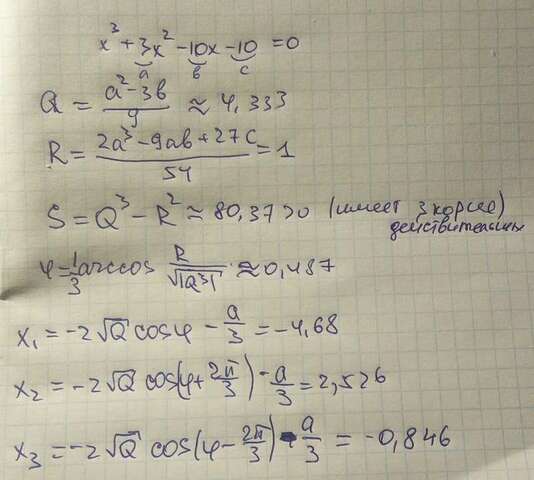 x³ + 3x² - 10x - 10 = 0
a b c
Q = (a² - 3b)/9 ≈ 4,333
R = (2a³ - 9ab + 27c)/54 = 1
S = Q³ - R² ≈ 80,37 > 0 (имеет 3 корня) действительных
φ = 1/3 arccos R/√|Q³| ≈ 0,487
x₁ = -2√Q cosφ - a/3 = -4,68
x₂ = -2√Q cos(φ + 2π/3) - a/3 = 2,526
x₃ = -2√Q cos(φ - 2π/3) - a/3 = -0,846